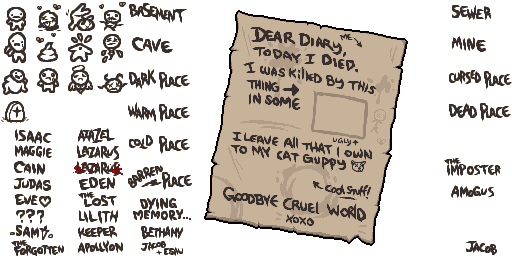 BASEMENT
CAVE
DARK PLACE
WARM PLACE
COLD PLACE
BARREN PLACE
ISAAC
MAGGIE
CAIN
JUDAS
EVE♡
???
SAM
THE FORGOTTEN
AZAZEL
LAZARUS
LAZARUS
EDEN
THE LOST
LILITH
KEEPER
APOLLYON
DYING
MEMORY...
BETHANY
JACOB
+ ESAU
DEAR DIARY,
ME
TODAY I DIED.
I WAS KILLED BY THIS
THING →
IN SOME
UGLY↑
I LEAVE ALL THAT I OWN
TO MY CAT GUPPY
COOL STUFF!
GOODBYE CRUEL WORLD
XOXO
SEWER
MINE
CURSED PLACE
DEAD PLACE
THE
IMPOSTER
AMOGUS
JACOB